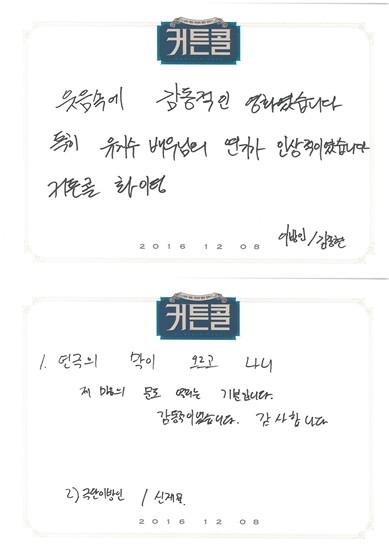 커튼콜
웃음속에 감동적인 영화였습니다
특히 유지수 배우님의 연기가 인상적이었습니다
커튼콜 화이팅
이방인/김종현
2016 12 08
커튼콜
1. 연극의 막이 오르고 나니
제 마음의 문도 열리는 기분입니다.
감동적이었습니다. 감사합니다
2) 극단이방인 / 신재
2016 12 08